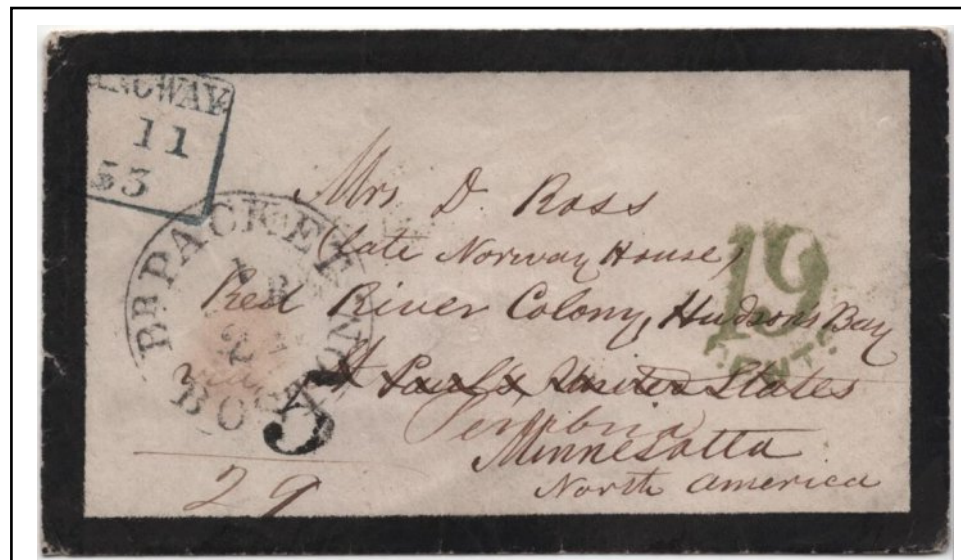 NGWAY
11
53
BR PACKET
BOSTON
5
29
19
CENTS
Mrs. D. Ross
(late Norway House)
Red River Colony, Hudson's Bay
via St Paul's United States
Pembina
Minnesotta
North America